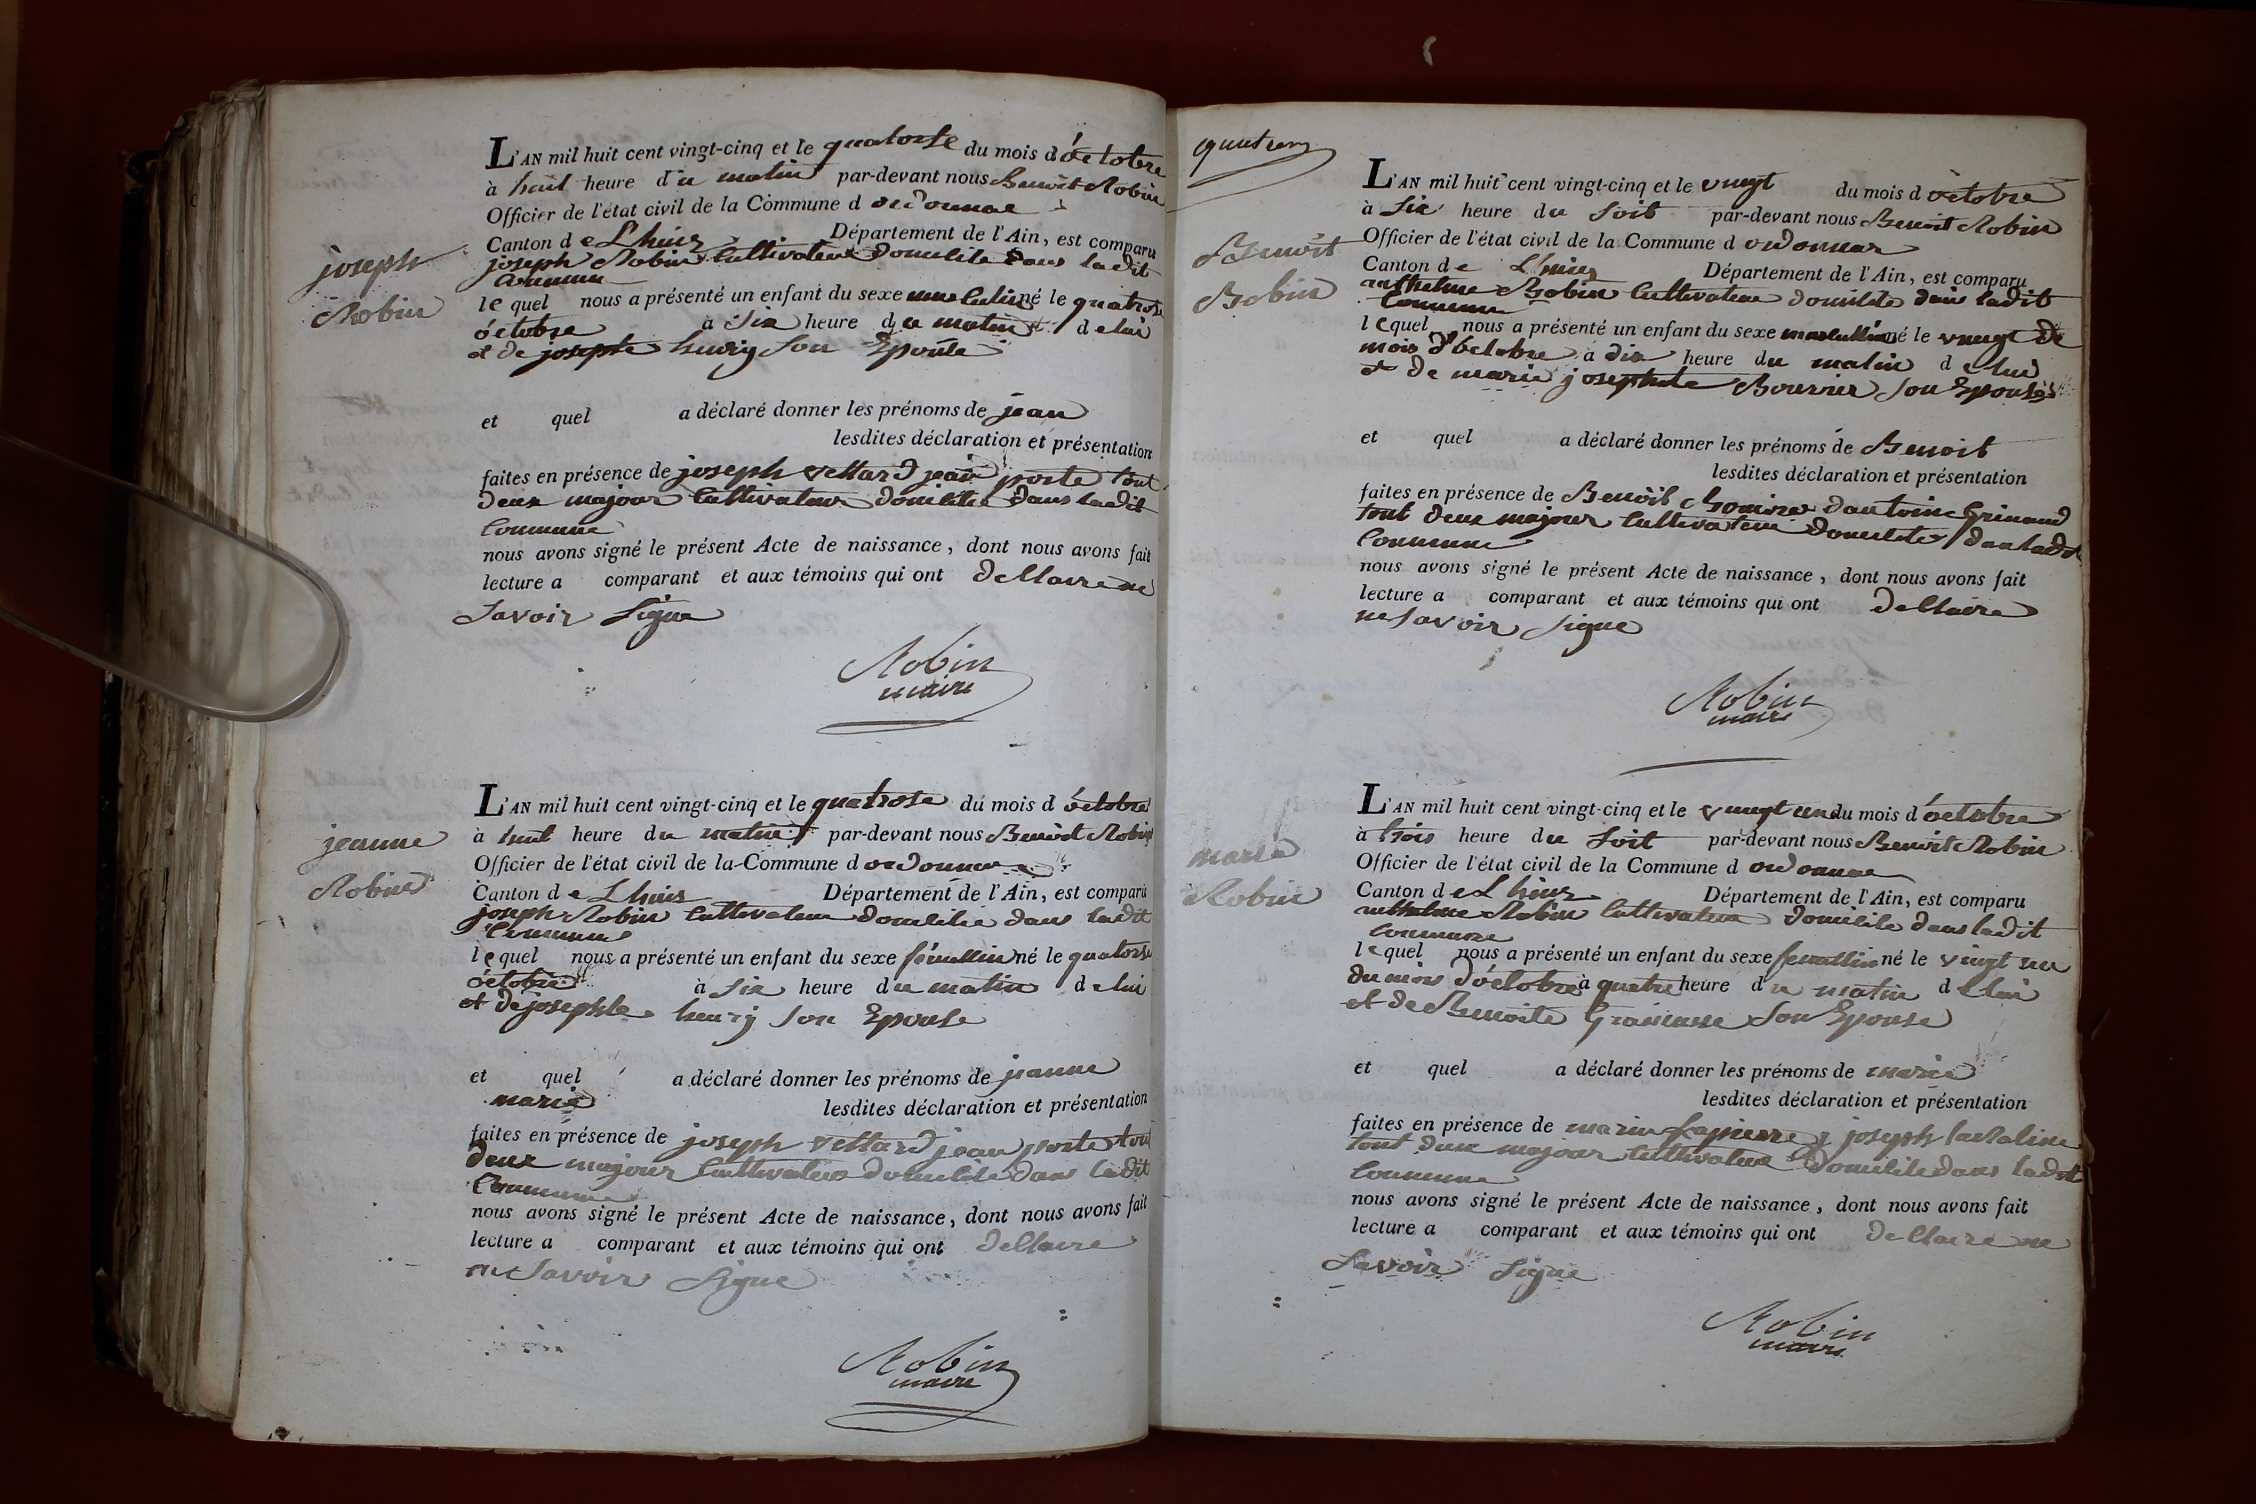 joseph
Robin
L'AN mil huit cent vingt-cinq et le quatorse du mois d'octobre
à huit heure du matin par-devant nous Benoit Robin
Officier de l'état civil de la Commune d ordonnac
Canton de Lhuis Département de l'Ain, est comparu
joseph Robin Cultivateur domicilie dans ladit
Commune
lequel nous a présenté un enfant du sexe né le quatrose
octobre à Six heure du matin de lui
et de josephte henry Son Epouse
et quel a déclaré donner les prénoms de jean
lesdites déclaration et présentation
faites en présence de joseph vettard jean poste tout
deux majour Cultivateur domicilie dans ladit
Commune
nous avons signé le présent Acte de naissance, dont nous avons fait
lecture a comparant et aux témoins qui ont dellaire ne
Savoir Signe
Robin
maire
jeanne
Robin
L'AN mil huit cent vingt-cinq et le quatrose du mois d'octobre
à huit heure du matin par-devant nous Benoit Robin
Officier de l'état civil de la Commune d ordonnac
Canton de Lhuis Département de l'Ain, est comparu
joseph Robin Cultivateur domicilie dans ladit
Commune
lequel nous a présenté un enfant du sexe femellin né le quatorse
octobre à Six heure du matin de lui
et de josephte henry Son Epouse
et quel a déclaré donner les prénoms de jeanne
marie
lesdites déclaration et présentation
faites en présence de joseph vettard jean poste tout
deux majour Cultivateur domicilie dans ladit
Commune
nous avons signé le présent Acte de naissance, dont nous avons fait
lecture a comparant et aux témoins qui ont dellaire
ne Savoir Signe
Robin
maire
Benoit
Robin
L'AN mil huit cent vingt-cinq et le vingt du mois d octobre
à Six heure du Soit par-devant nous Benoit Robin
Officier de l'état civil de la Commune d ordonnac
Canton de Lhuis Département de l'Ain, est comparu
anthelme Robin Cultivateur domicile dans ladit
Commune
lequel nous a présenté un enfant du sexe mascullin né le vingt de
mois d'octobre à dix heure du matin de lui
et de marie josephte Bourrier Son Epouse
et quel a déclaré donner les prénoms de Benoit
lesdites déclaration et présentation
faites en présence de Benoit dantoine Grinand
tout deux majour Cultivateur domicilete dans ladit
Commune
nous avons signé le présent Acte de naissance, dont nous avons fait
lecture a comparant et aux témoins qui ont dellaire
ne Savoir Signe
Robin
maire
maria
Robin
L'AN mil huit cent vingt-cinq et le vingt un du mois d'octobre
à trois heure du Soit par-devant nous Benoit Robin
Officier de l'état civil de la Commune d ordonnac
Canton de Lhuis Département de l'Ain, est comparu
anthelme Robin Cultivateur domicile dans ladit
Commune
lequel nous a présenté un enfant du sexe femellin né le vingt un
du mois d'octobre à quatre heure du matin de lui
et de Benoite Son Epouse
et quel a déclaré donner les prénoms de marie
lesdites déclaration et présentation
faites en présence de marin Lapierre joseph
tout deux majour Cultivateur domicile dans ladit
Commune
nous avons signé le présent Acte de naissance, dont nous avons fait
lecture a comparant et aux témoins qui ont dellaire ne
Savoir Signe
Robin
maire